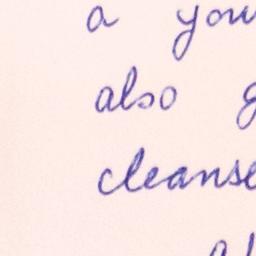 a you
also g
cleanse